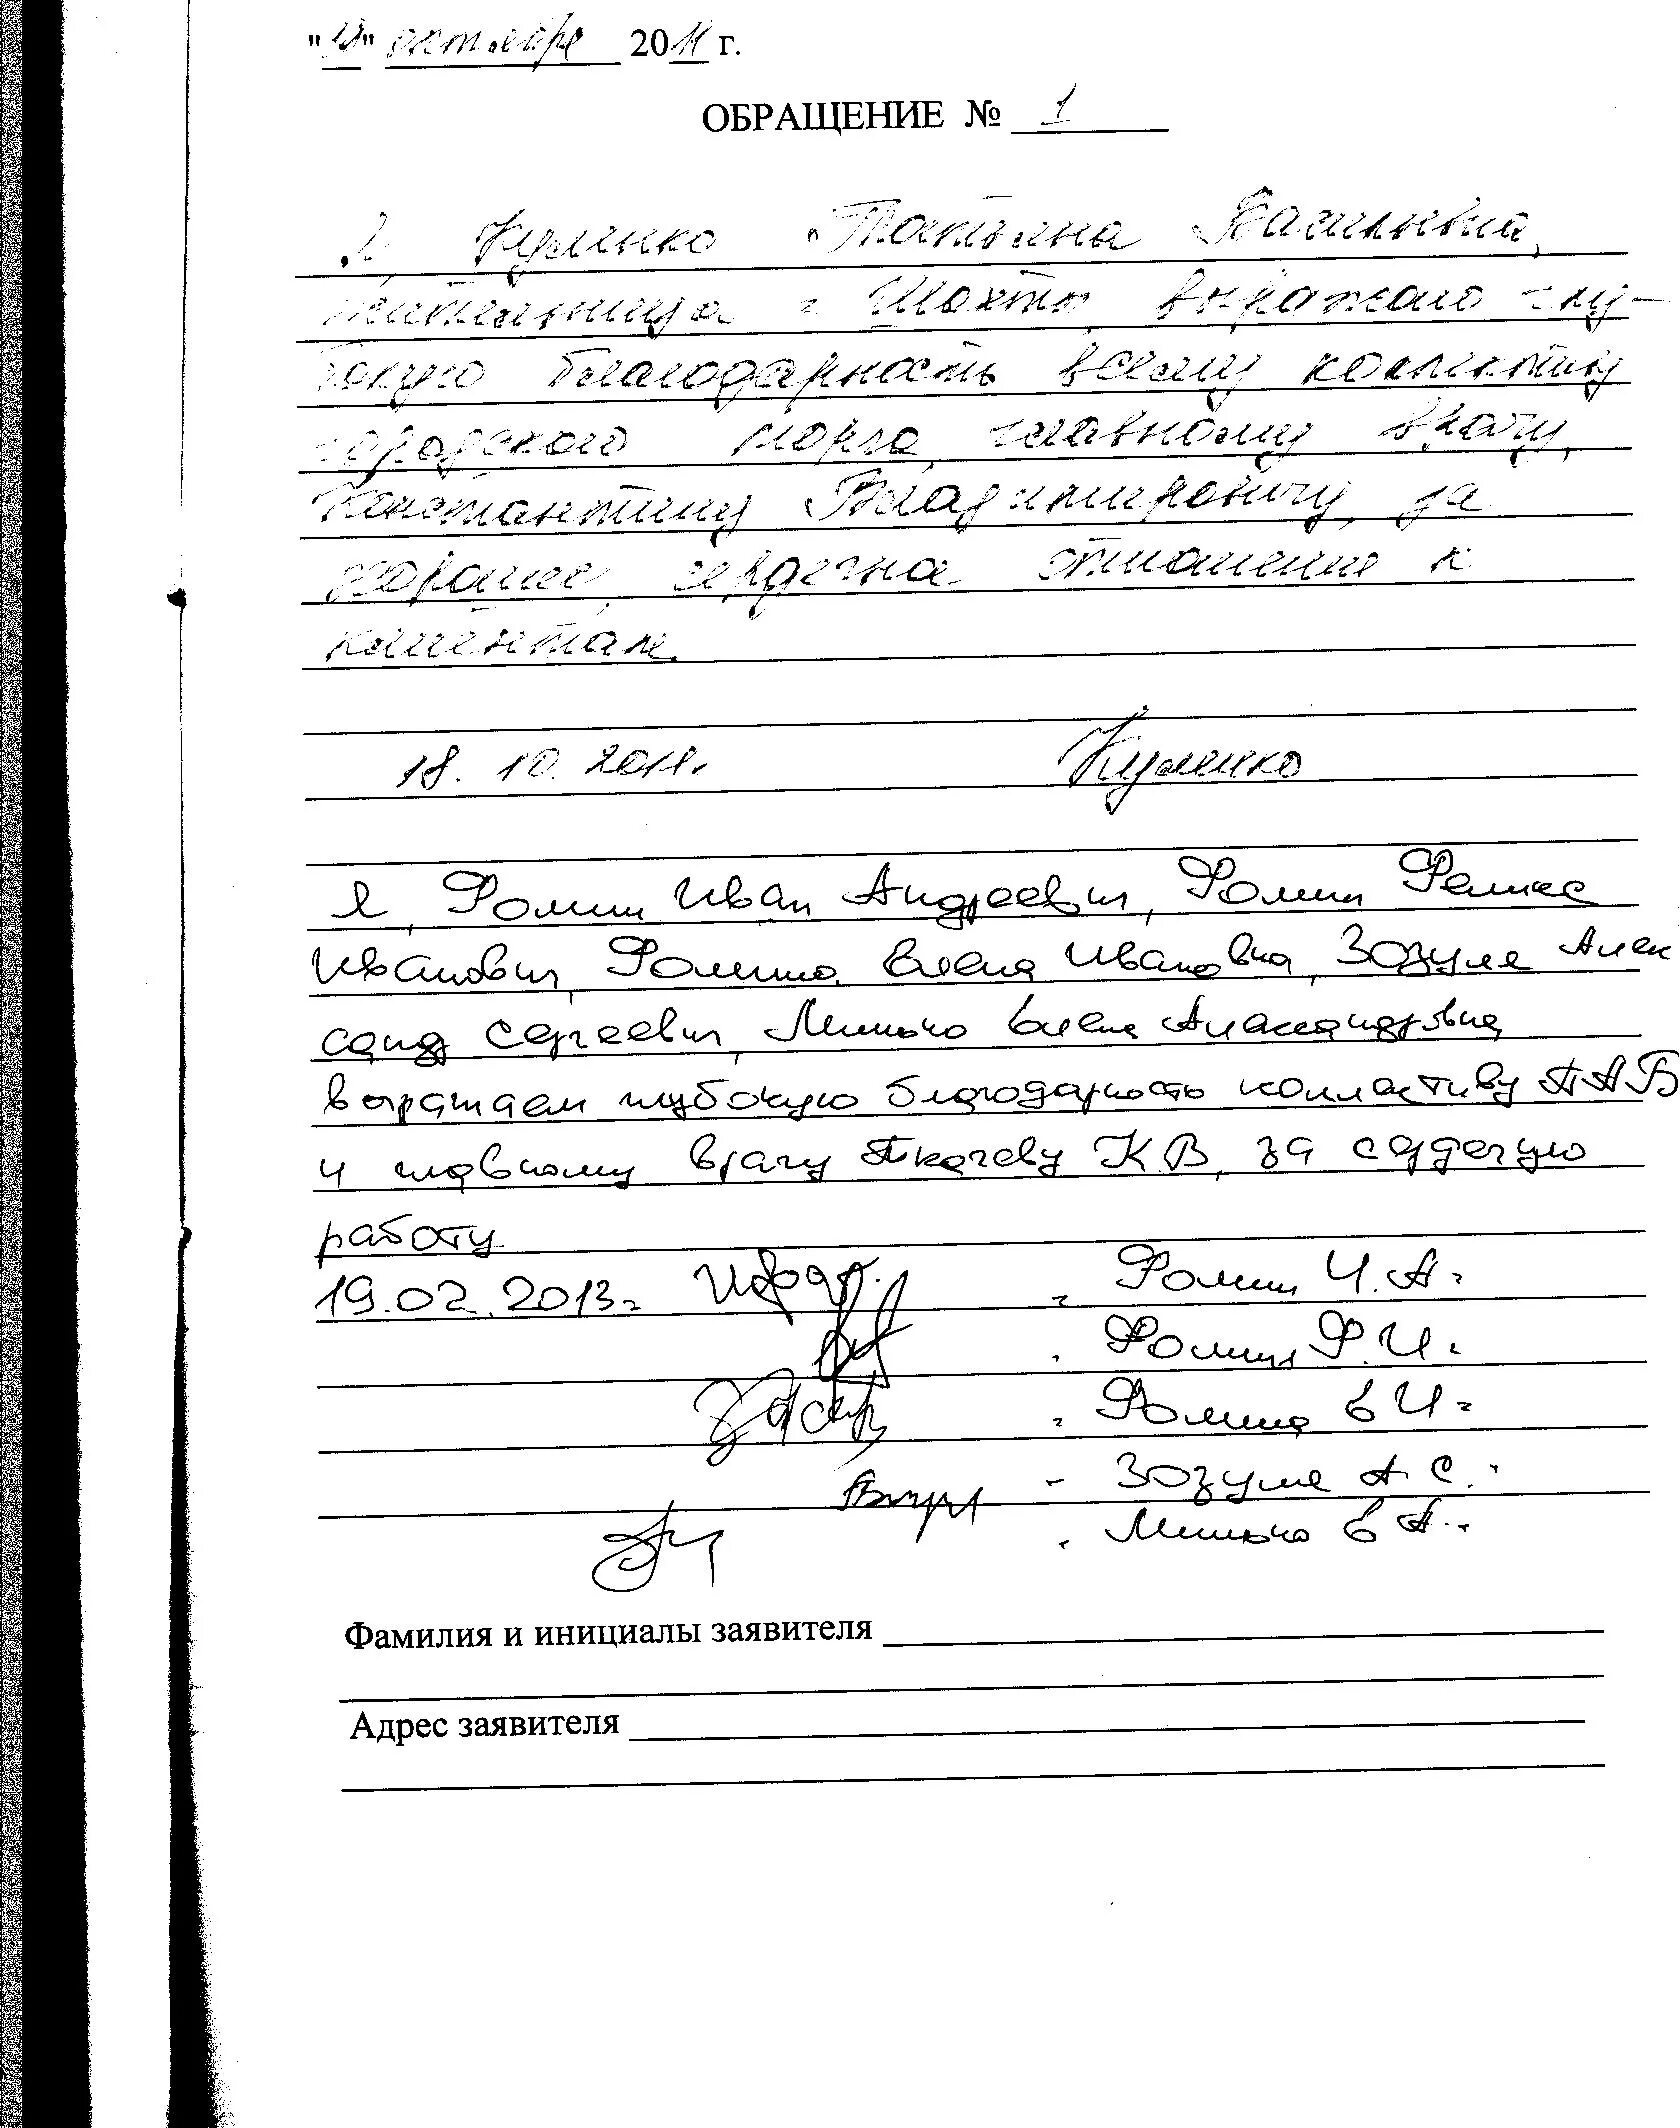 "18" октября 2011 г.
ОБРАЩЕНИЕ № 1
Я, Куленко Татьяна Васильевна,
жительница г Шахты, выражаю глу-
бокую благодарность всему коллективу
городского морга, главному врачу,
Константину Владимировичу, за
хорошее, сердечное отношение к
клиентам.
18. 10. 2011г. Куленко
Я, Фомин Иван Андреевич, Фомин Феликс
Иванович, Фомина Елена Ивановна, Зозуля Алек
санд Сергеевич, Минько Елена Александровна
выражаем глубокую благодарность коллективу ПАБ
и главному врачу Ткачеву К В, за сердечную
работу
19.02.2013г Фомин И.А.
Фомин Ф.И.
Фомина Е И.
- Зозуля А. С.
Минько Е А.
Фамилия и инициалы заявителя
Адрес заявителя